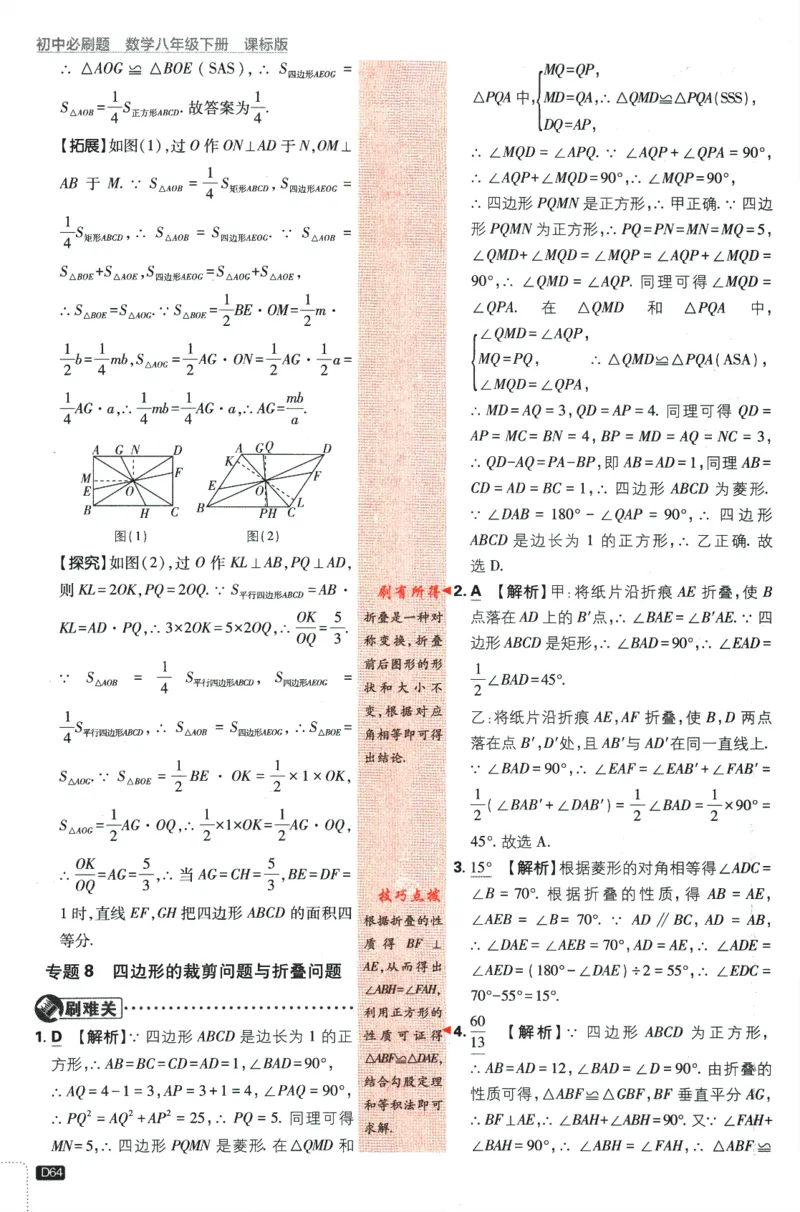 初中必刷题 数学八年级下册 课标版
∴ △AOG ≌ △BOE (SAS), ∴ S四边形AEOG =
S△AOB = 1/4 S正方形ABCD. 故答案为 1/4.
【拓展】如图(1),过 O 作 ON⊥AD 于 N,OM⊥
AB 于 M. ∵ S△AOB = 1/4 S矩形ABCD, S四边形AEOG =
1/4 S矩形ABCD, ∴ S△AOB = S四边形AEOG. ∵ S△AOB =
S△BOE+S△AOE, S四边形AEOG=S△AOG+S△AOE,
∴ S△BOE=S△AOG. ∵ S△BOE= 1/2 BE·OM= 1/2 m·
1/2 b= 1/4 mb, S△AOG= 1/2 AG·ON= 1/2 AG· 1/2 a=
1/4 AG·a, ∴ 1/4 mb= 1/4 AG·a, ∴ AG= mb/a.
A G N D
M E O F
B H C
图(1)
A G Q D
K E O F
B P H C L
图(2)
【探究】如图(2),过 O 作 KL⊥AB,PQ⊥AD,
则 KL=2OK,PQ=2OQ. ∵ S平行四边形ABCD=AB·
KL=AD·PQ, ∴ 3×2OK=5×2OQ, ∴ OK/OQ = 5/3.
∵ S△AOB = 1/4 S平行四边形ABCD, S四边形AEOG =
1/4 S平行四边形ABCD, ∴ S△AOB = S四边形AEOG, ∴ S△BOE=
S△AOG. ∵ S△BOE = 1/2 BE·OK = 1/2 ×1×OK,
S△AOG= 1/2 AG·OQ, ∴ 1/2 ×1×OK= 1/2 AG·OQ,
∴ OK/OQ =AG= 5/3, ∴ 当 AG=CH= 5/3, BE=DF=
1 时,直线 EF,GH 把四边形 ABCD 的面积四
等分.
专题8 四边形的裁剪问题与折叠问题
刷难关
1. D 【解析】∵ 四边形 ABCD 是边长为 1 的正
方形, ∴ AB=BC=CD=AD=1, ∠BAD=90°,
∴ AQ=4-1=3, AP=3+1=4, ∠PAQ=90°,
∴ PQ²=AQ²+AP²=25, ∴ PQ=5. 同理可得
MN=5, ∴ 四边形 PQMN 是菱形. 在△QMD 和
D64
刷有所得
折叠是一种对
称变换,折叠
前后图形的形
状和大小不
变,根据对应
角相等即可得
出结论.
技巧点拨
根据折叠的性
质得 BF⊥
AE,从而得出
∠ABH=∠FAH,
利用正方形的
性质可证得
△ABF≌△DAE,
结合勾股定理
和等积法即可
求解.
△PQA 中, { MQ=QP, MD=QA, DQ=AP, ∴ △QMD≌△PQA(SSS),
∴ ∠MQD=∠APQ. ∵ ∠AQP+∠QPA=90°,
∴ ∠AQP+∠MQD=90°, ∴ ∠MQP=90°,
∴ 四边形 PQMN 是正方形, ∴ 甲正确. ∵ 四边
形 PQMN 为正方形, ∴ PQ=PN=MN=MQ=5,
∠QMD+∠MQD=∠MQP=∠AQP+∠MQD=
90°, ∴ ∠QMD=∠AQP. 同理可得 ∠MQD=
∠QPA. 在 △QMD 和 △PQA 中,
{ ∠QMD=∠AQP, MQ=PQ, ∠MQD=∠QPA, ∴ △QMD≌△PQA(ASA),
∴ MD=AQ=3, QD=AP=4. 同理可得 QD=
AP=MC=BN=4, BP=MD=AQ=NC=3,
∴ QD-AQ=PA-BP, 即 AB=AD=1, 同理 AB=
CD=AD=BC=1, ∴ 四边形 ABCD 为菱形.
∵ ∠DAB=180°-∠QAP=90°, ∴ 四边形
ABCD 是边长为 1 的正方形, ∴ 乙正确. 故
选 D.
2. A 【解析】甲:将纸片沿折痕 AE 折叠,使 B
点落在 AD 上的 B′点, ∴ ∠BAE=∠B′AE. ∵ 四
边形 ABCD 是矩形, ∴ ∠BAD=90°, ∴ ∠EAD=
1/2 ∠BAD=45°.
乙:将纸片沿折痕 AE,AF 折叠,使 B,D 两点
落在点 B′,D′处,且 AB′与 AD′在同一直线上.
∵ ∠BAD=90°, ∴ ∠EAF=∠EAB′+∠FAB′=
1/2 (∠BAB′+∠DAB′)= 1/2 ∠BAD= 1/2 ×90°=
45°. 故选 A.
3. 15° 【解析】根据菱形的对角相等得∠ADC=
∠B=70°. 根据折叠的性质,得 AB=AE,
∠AEB=∠B=70°. ∵ AD∥BC, AD=AB,
∴ ∠DAE=∠AEB=70°, AD=AE, ∴ ∠ADE=
∠AED=(180°-∠DAE)÷2=55°, ∴ ∠EDC=
70°-55°=15°.
4. 60/13 【解析】∵ 四边形 ABCD 为正方形,
∴ AB=AD=12, ∠BAD=∠D=90°. 由折叠的
性质可得, △ABF≌△GBF, BF 垂直平分 AG,
∴ BF⊥AE, ∴ ∠BAH+∠ABH=90°. 又∵ ∠FAH+
∠BAH=90°, ∴ ∠ABH=∠FAH, ∴ △ABF≌